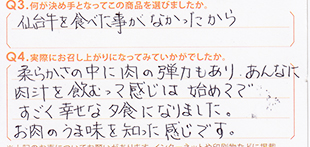 Q3.何が決め手となってこの商品を選びましたか。
仙台牛を食べた事がなかったから
Q4.実際にお召し上がりになってみていかがでしたか。
柔らかさの中に肉の弾力もあり、あんなに
肉汁を飲むって感じは始めてで
すごく幸せな夕食になりました。
お肉のうま味を知った感じです。